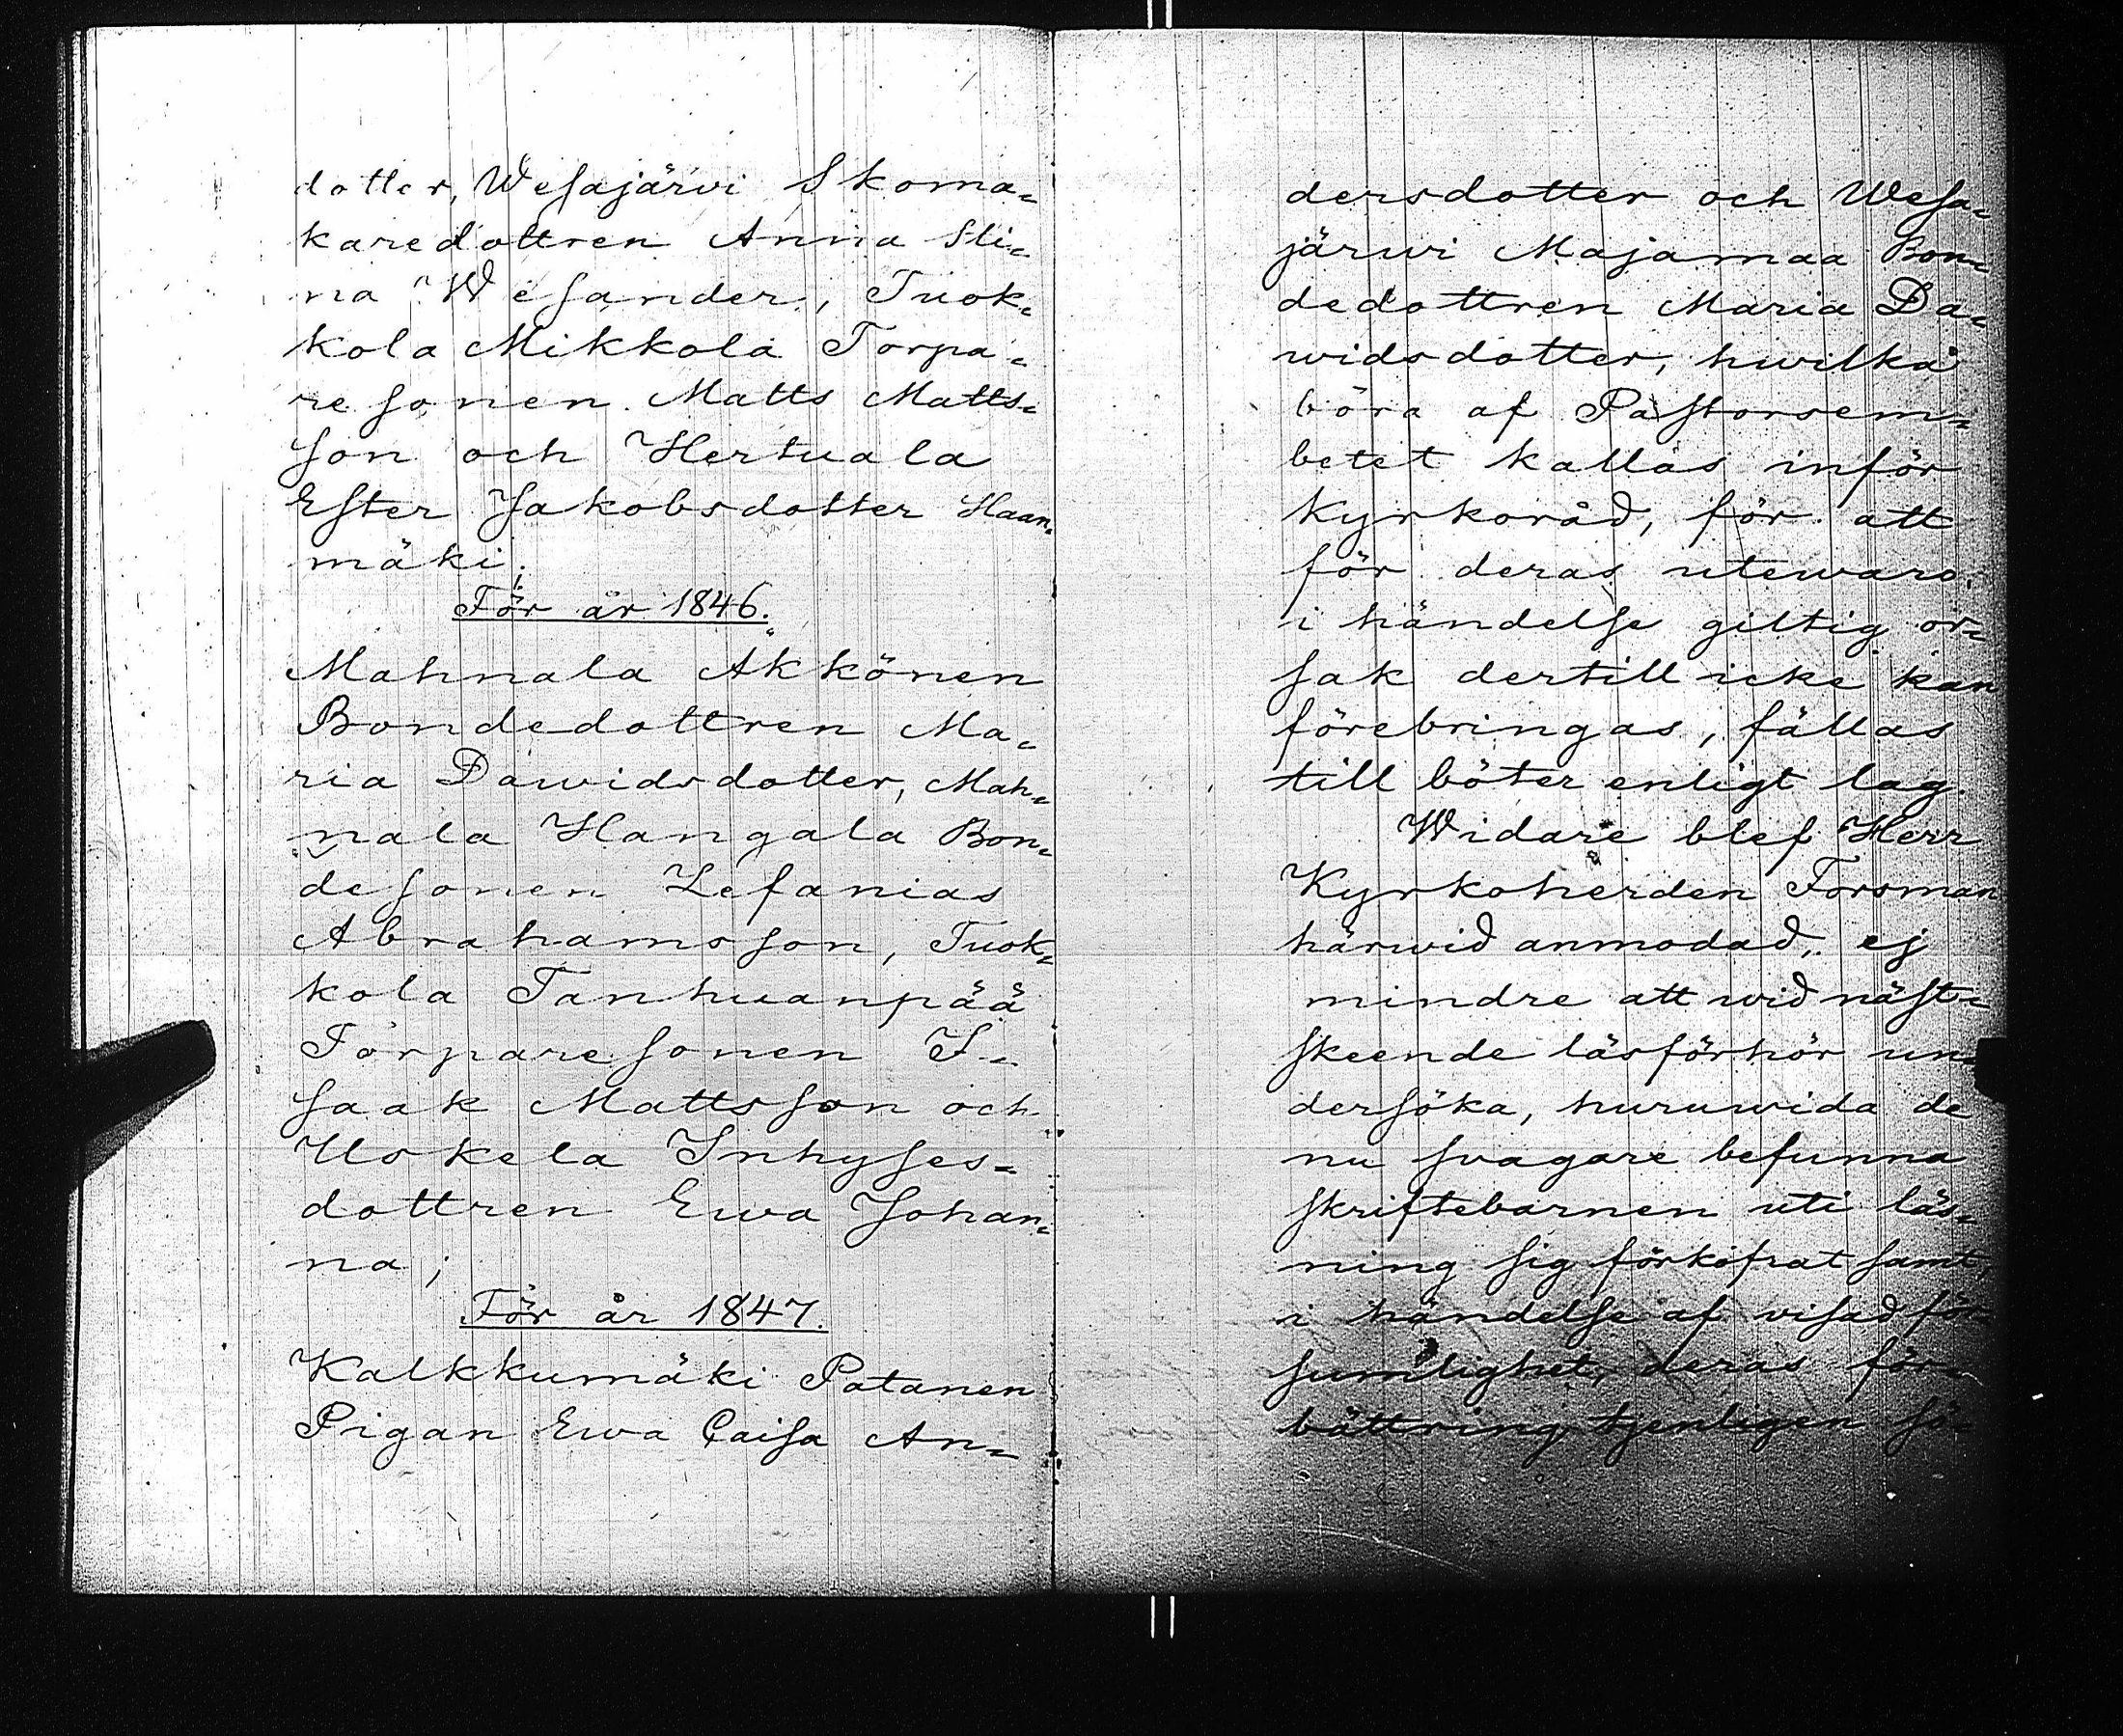 dotter, Wesajärvi Skoma=
karedottren Anna Sti=
na Wesander, Tuok=
kola Mikkola Torpa=
resonen Matts Matts=
son och Hertuala
Ester Jakobsdotter Haan=
mäki;
För år 1846.
Mahnala Akkönen
Bondedottren Ma=
ria Dawidsdotter, Mah=
nala Hangala Bon=
desonen Zefanias
Abrahamsson, Tuok=
kola Tanhuanpää
Torparesonen I=
saak Mattsson och
Uskela Inhyses=
dottren Ewa Johan=
na;
För år 1847.
Kalkkumäki Patanen
Pigan Ewa Caisa An=
dersdotter och Wesa=
järwi Majamaa Bon=
dedottren Maria Da=
widsdotter, hwilka
böra af Pastorsem=
betet kallas inför
Kyrkoråd, för att
för deras utewaro.
i händelse giltig or=
sak dertill icke kan
förebringas, fällas
till böter enligt lag.
Widare blef Herr
Kyrkoherden Forsman
härwid anmodad, ej
mindre att wid näst=
skeende läsförhör un=
dersöka, huruwida de
nu svagare befunna
skriftebarnen uti läs=
ning sig förkofrat samt,
i händelse af visad för=
sumlighet, deras för=
bättring tjenligen sö=